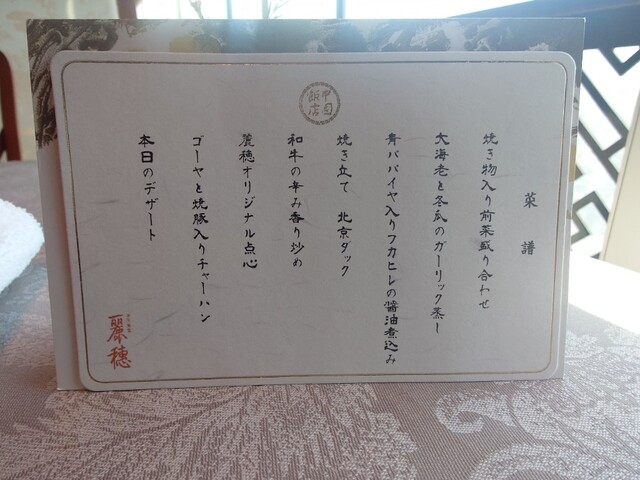 菜譜
焼き物入り前菜盛り合わせ
大海老と冬瓜のガーリック蒸し
青パパイヤ入りフカヒレの醤油煮込み
焼き立て 北京ダック
和牛の辛み香り炒め
麗穂オリジナル点心
ゴーヤと焼豚入りチャーハン
本日のデザート
麗穂